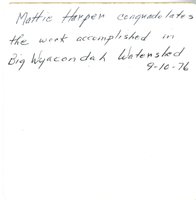 Mattie Harper congradulates
the work accomplished in
Big Wyacondah Watershed
9-10-76